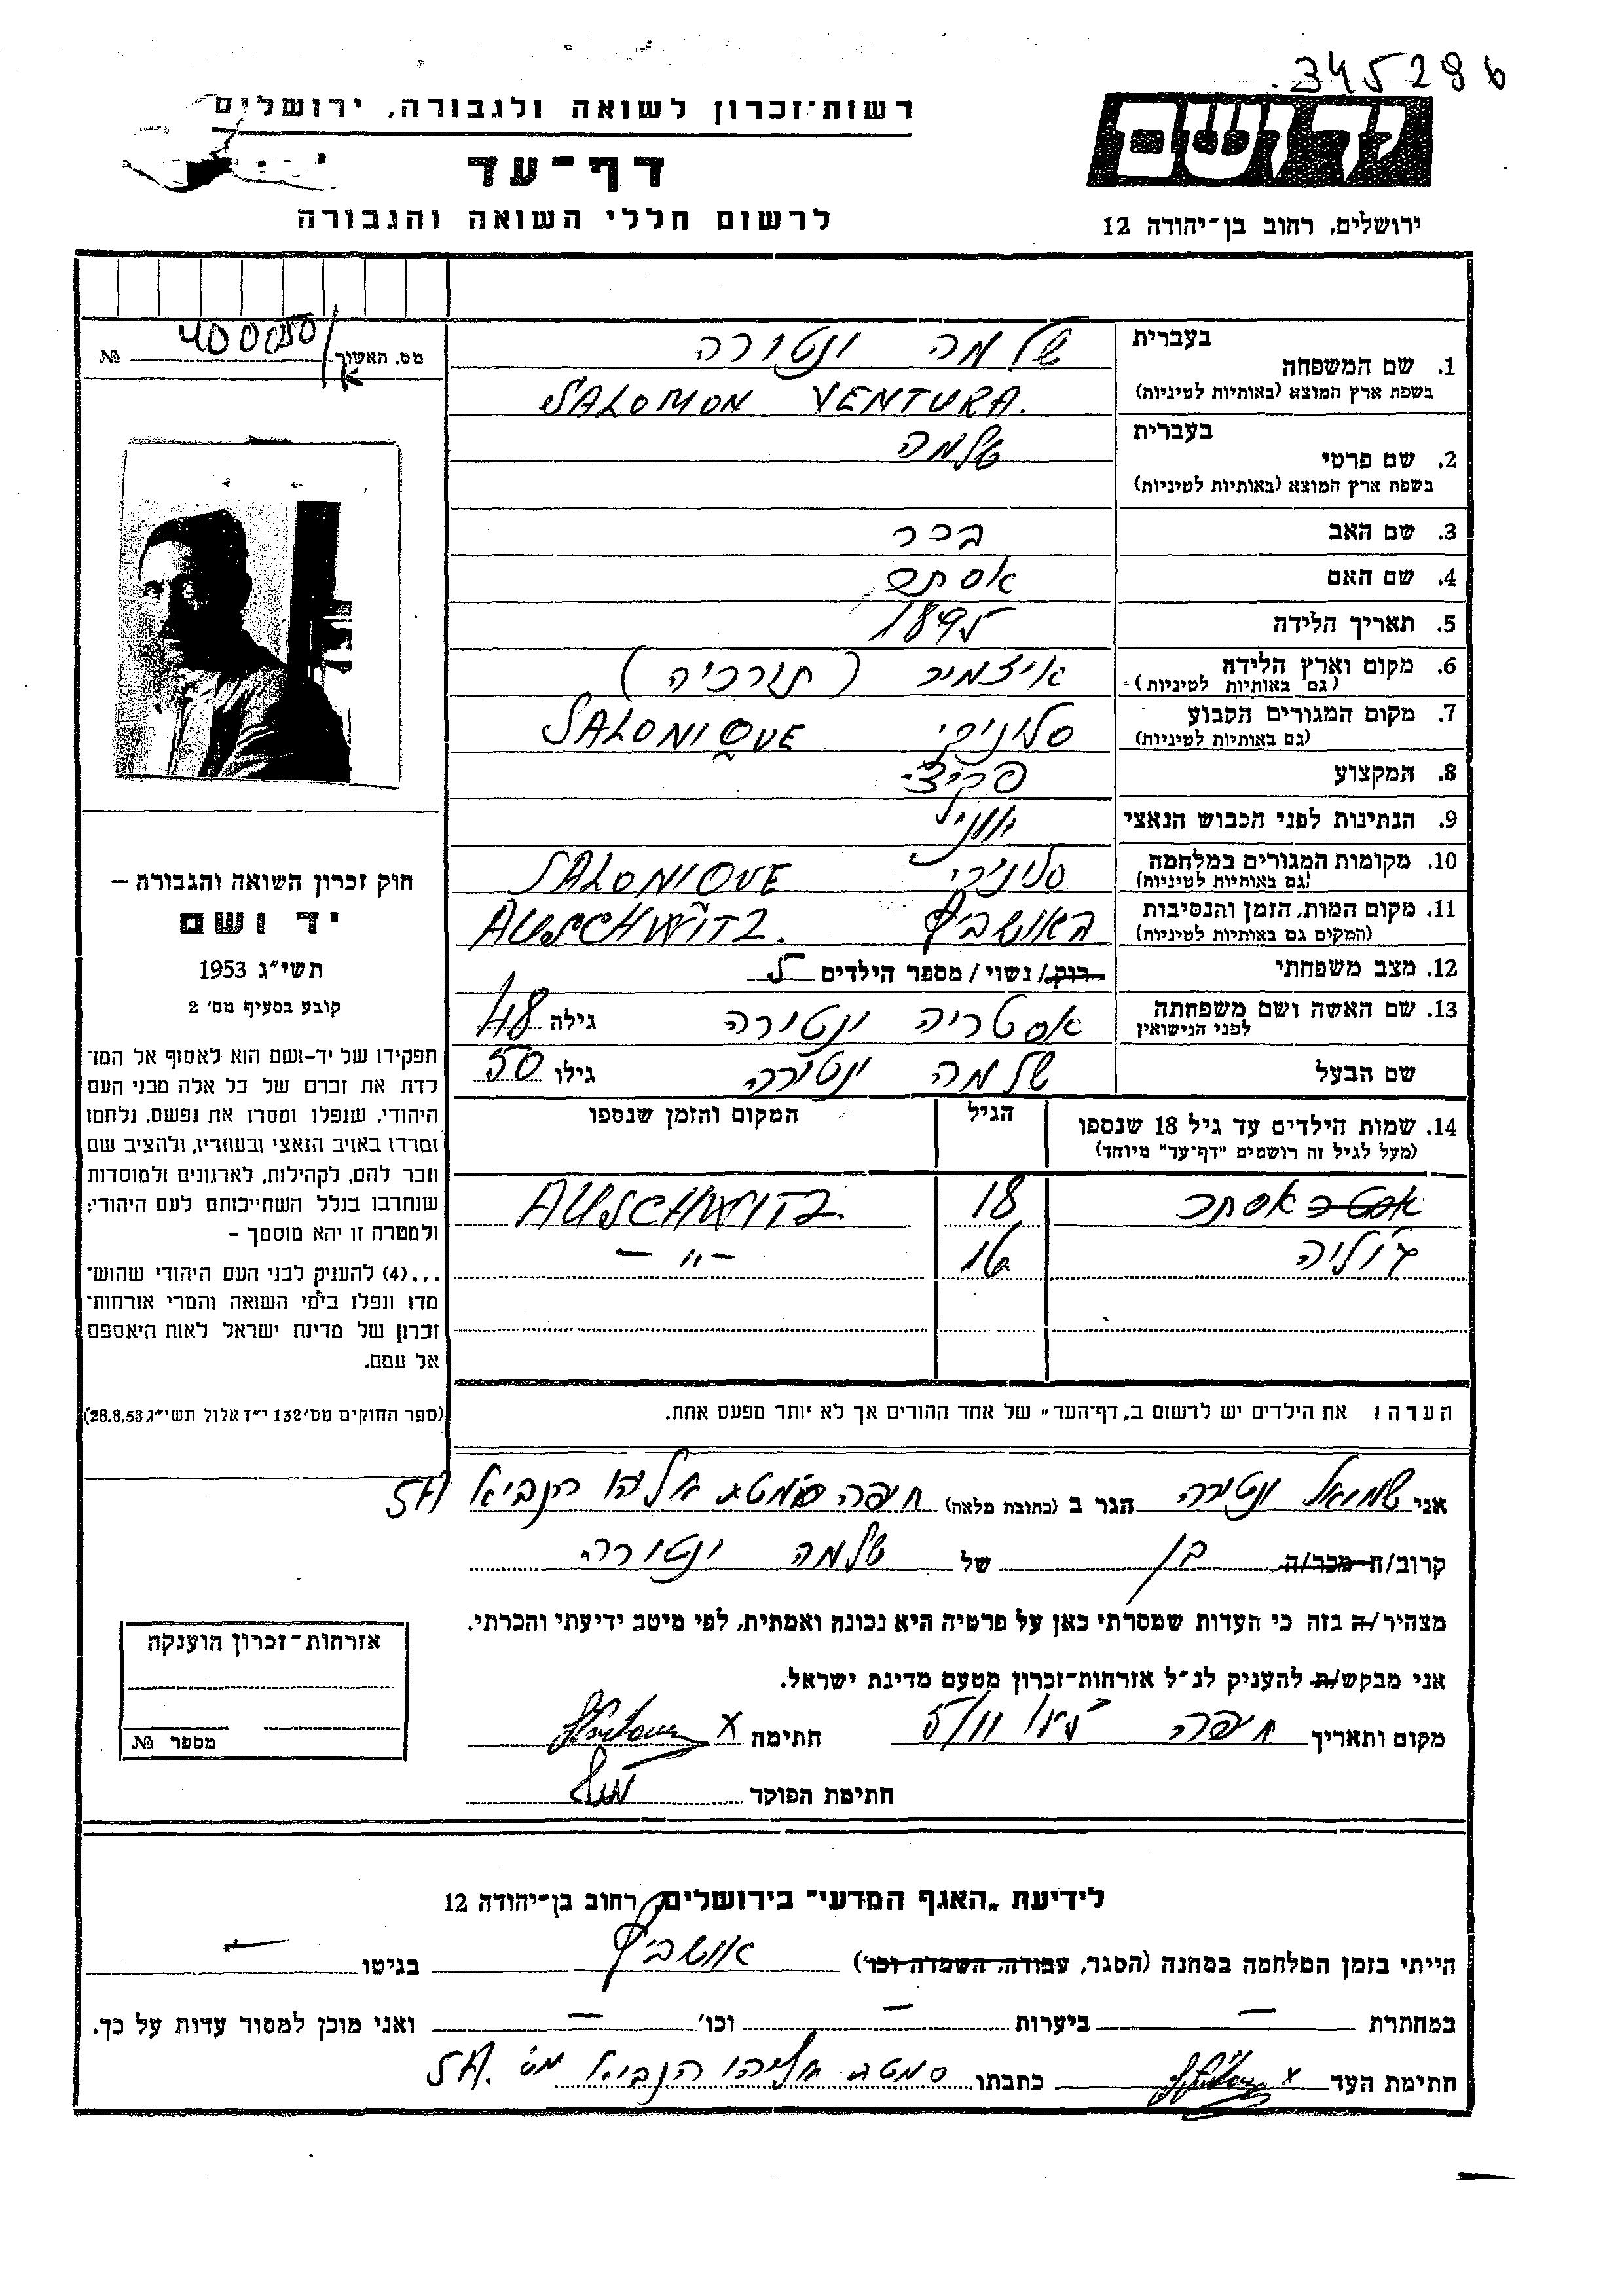 345296
רשות־זכרון לשואה ולגבורה, ירושלים
יד ושם
דף־עד
לרשום חללי השואה והגבורה
ירושלים, רחוב בן־יהודה 12
מס. האשור № 400050
1. שם המשפחה בעברית שלמה ונטורה
בשפת ארץ המוצא (באותיות לטיניות) SALOMON VENTURA.
2. שם פרטי בעברית שלמה
בשפת ארץ המוצא (באותיות לטיניות)
3. שם האב בכר
4. שם האם אסתר
5. תאריך הלידה 1895
6. מקום וארץ הלידה (גם באותיות לטיניות) איזמיר (תורכיה)
7. מקום המגורים הקבוע (גם באותיות לטיניות) סלוניקי SALONIQUE
8. המקצוע
9. הנתינות לפני הכבוש הנאצי
10. מקומות המגורים במלחמה (גם באותיות לטיניות) סלוניקי SALONIQUE
11. מקום המות, הזמן והנסיבות (המקום גם באותיות לטיניות) באושביץ AUSCHWITZ.
12. מצב משפחתי רוק/ נשוי/ מספר הילדים 5
13. שם האשה ושם משפחתה לפני הנישואין אסטריה ונטורה גילה 48
שם הבעל שלמה ונטורה גילו 50
14. שמות הילדים עד גיל 18 שנספו (מעל לגיל זה רושמים "דף־עד" מיוחד) הגיל המקום והזמן שנספו
אסתר 18 AUSCHWITZ
ג'וליה 16 –״–
הערה: את הילדים יש לרשום ב„דף־העד" של אחד ההורים אך לא יותר מפעם אחת.
חוק זכרון השואה והגבורה –
יד ושם
תשי״ג 1953
קובע בסעיף מס׳ 2
תפקידו של יד-ושם הוא לאסוף אל המו־
לדת את זכרם של כל אלה מבני העם
היהודי, שנפלו ומסרו את נפשם, נלחמו
ומרדו באויב הנאצי ובעוזריו, ולהציב שם
וזכר להם, לקהילות, לארגונים ולמוסדות
שנחרבו בגלל השתייכותם לעם היהודי;
ולמטרה זו יהא מוסמך –
...(4) להעניק לבני העם היהודי שהוש־
מדו ונפלו בימי השואה והמרי אזרחות־
זכרון של מדינת ישראל לאות היאספם
אל עמם.
(ספר החוקים מס׳ 132 י״ז אלול תשי״ג 28.8.53)
אני שמואל ונטורה הגר ב (כתובת מלאה) חיפה סמטג אליהו הנביא 5A
קרוב/ה מכר/ה בן של שלמה ונטורה
מצהיר/ה בזה כי העדות שמסרתי כאן על פרטיה היא נכונה ואמתית, לפי מיטב ידיעתי והכרתי.
אני מבקש/ת להעניק לנ״ל אזרחות־זכרון מטעם מדינת ישראל.
מקום ותאריך חיפה חתימה X
חתימת הפוקד
אזרחות־זכרון הוענקה
מספר №
לידיעת „האגף המדעי" בירושלים, רחוב בן־יהודה 12
הייתי בזמן המלחמה במחנה (הסגר, עבודה, השמדה וכו׳) אושביץ בגיטו –
במחתרת – ביערות – וכו׳ – ואני מוכן למסור עדות על כך.
חתימת העד X כתבתו סמטג אליהו הנביא מס׳ 5A.